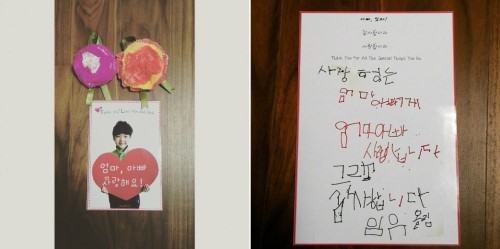 엄마, 아빠
사랑해요!
감사합니다
사랑합니다
Thank You For All The Special Things You Do
사랑 하는
엄마 아빠에게
엄마아빠
사랍합니다
그르고
감사합니다
올림